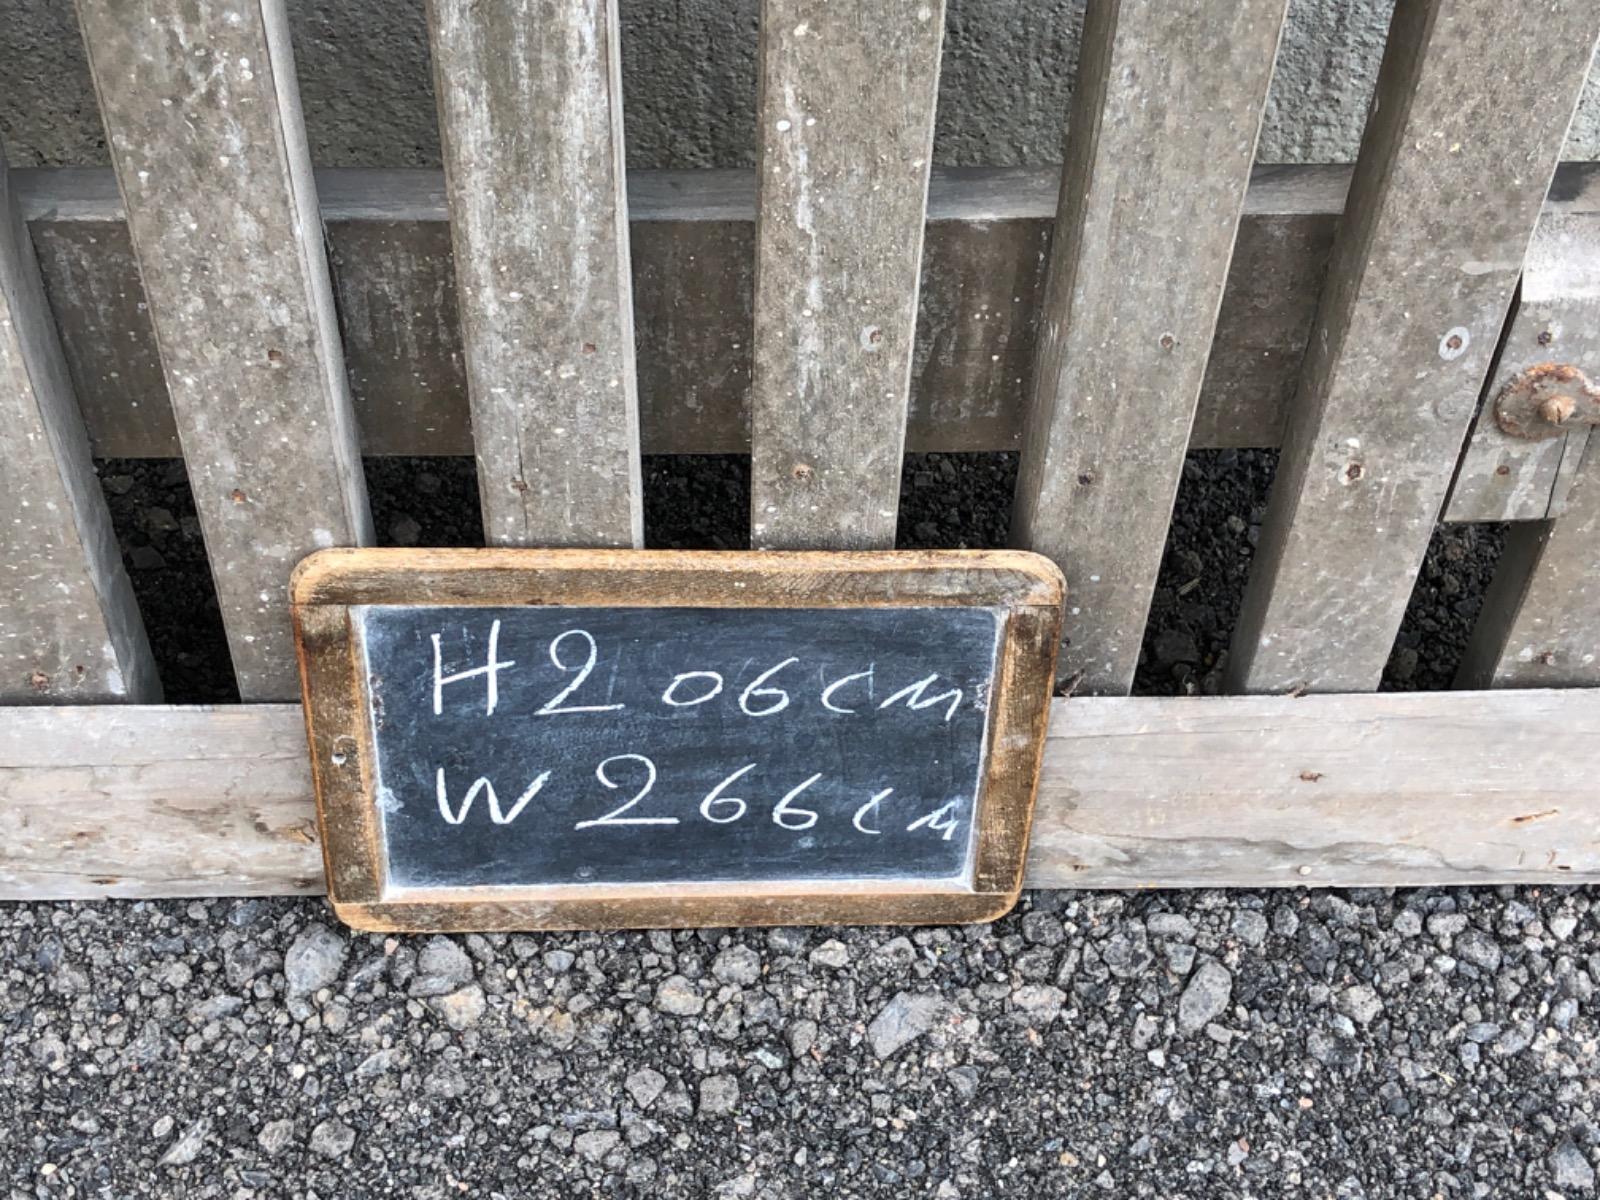 H206cm
W266cm